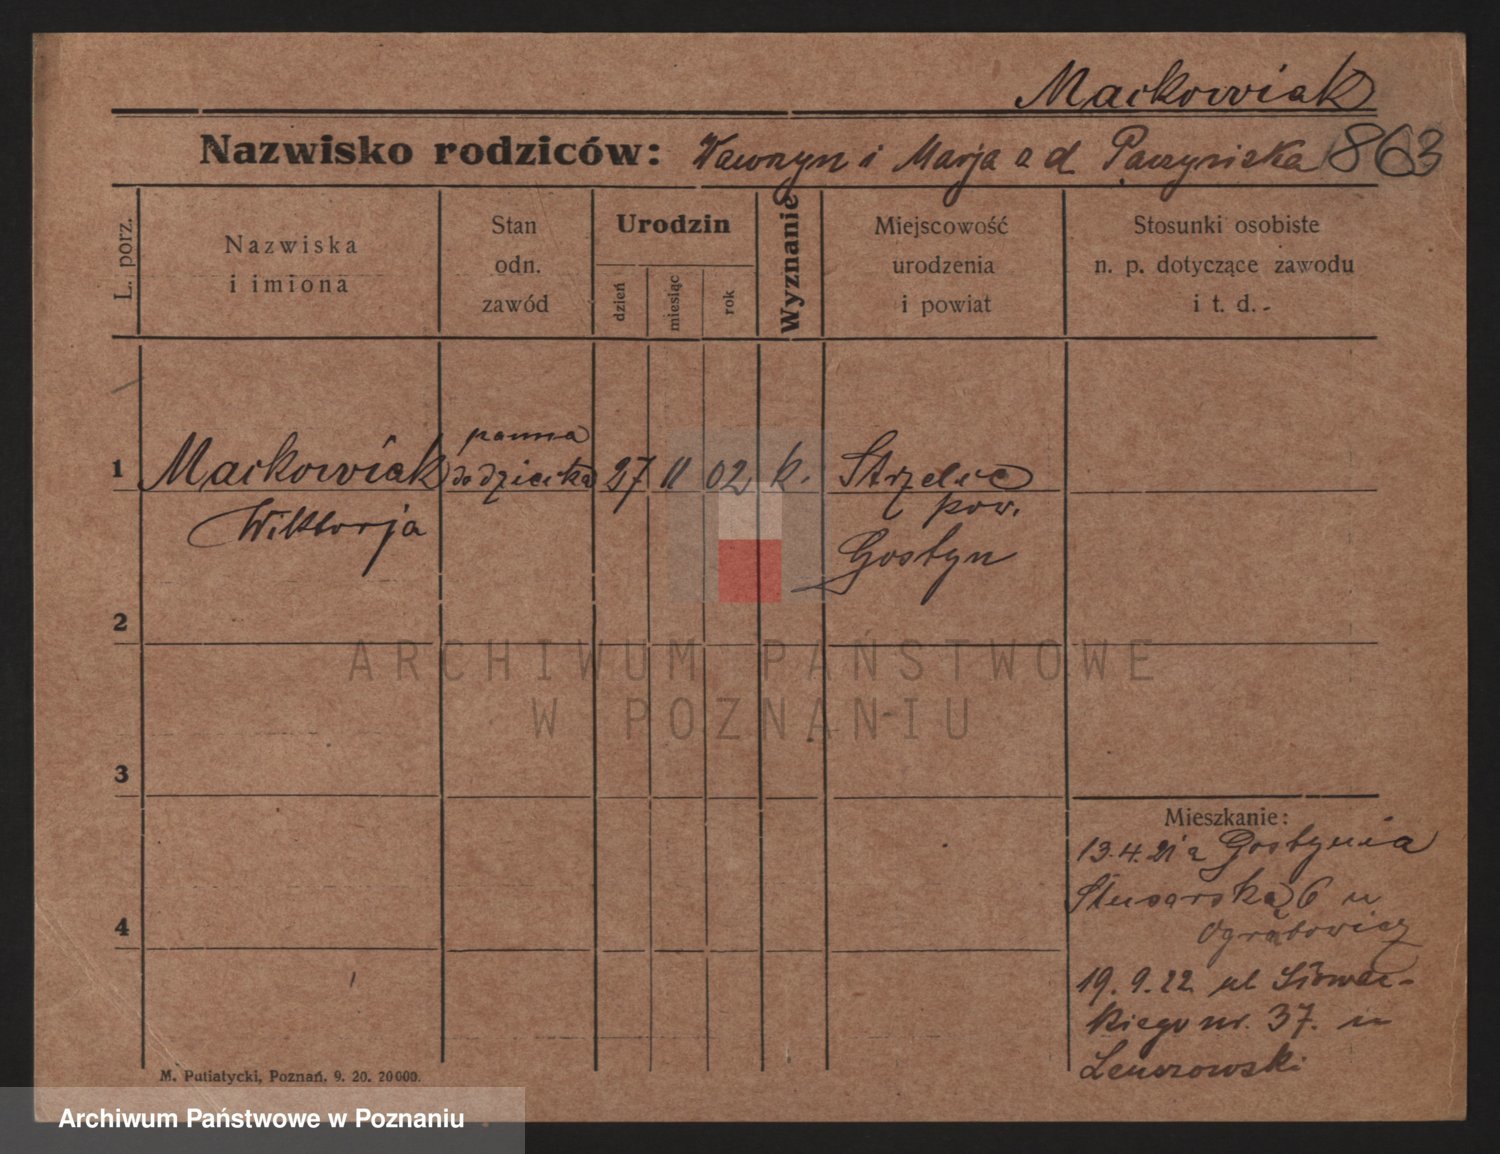 Mackowiak
Nazwisko rodziców: Wawrzyn i Marja a d Paczyńska 863
L. porz.
Nazwiska
i imiona
Stan
odn.
zawód
Urodzin
dzień
miesiąc
rok
Wyznanie
Miejscowość
urodzenia
i powiat
Stosunki osobiste
n. p. dotyczące zawodu
i t. d.-
1 Mackowiak panna do dziecka 27 11 02 k. Strzelce
Wiktorja pow.
Gostyn
2
3
4
ARCHIWUM PAŃSTWOWE
W POZNANIU
Mieszkanie:
13.4.21 z Gostynia
6 u
19.9.22 ul Słowac-
kiego nr. 37. u
M. Putiatycki, Poznań. 9. 20. 20000.
Archiwum Państwowe w Poznaniu